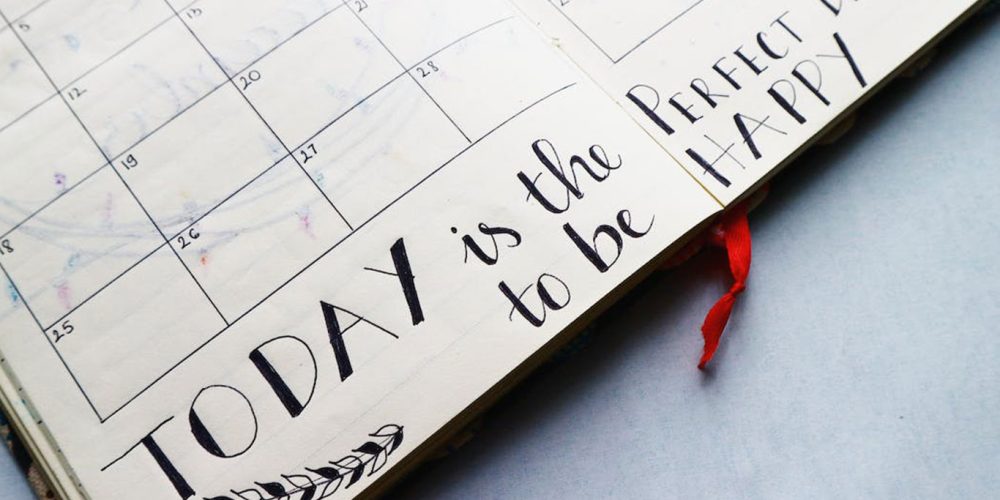 5
12 13
18 19 20 21
25 26 27 28
TODAY is the PERFECT
to be HAPPY